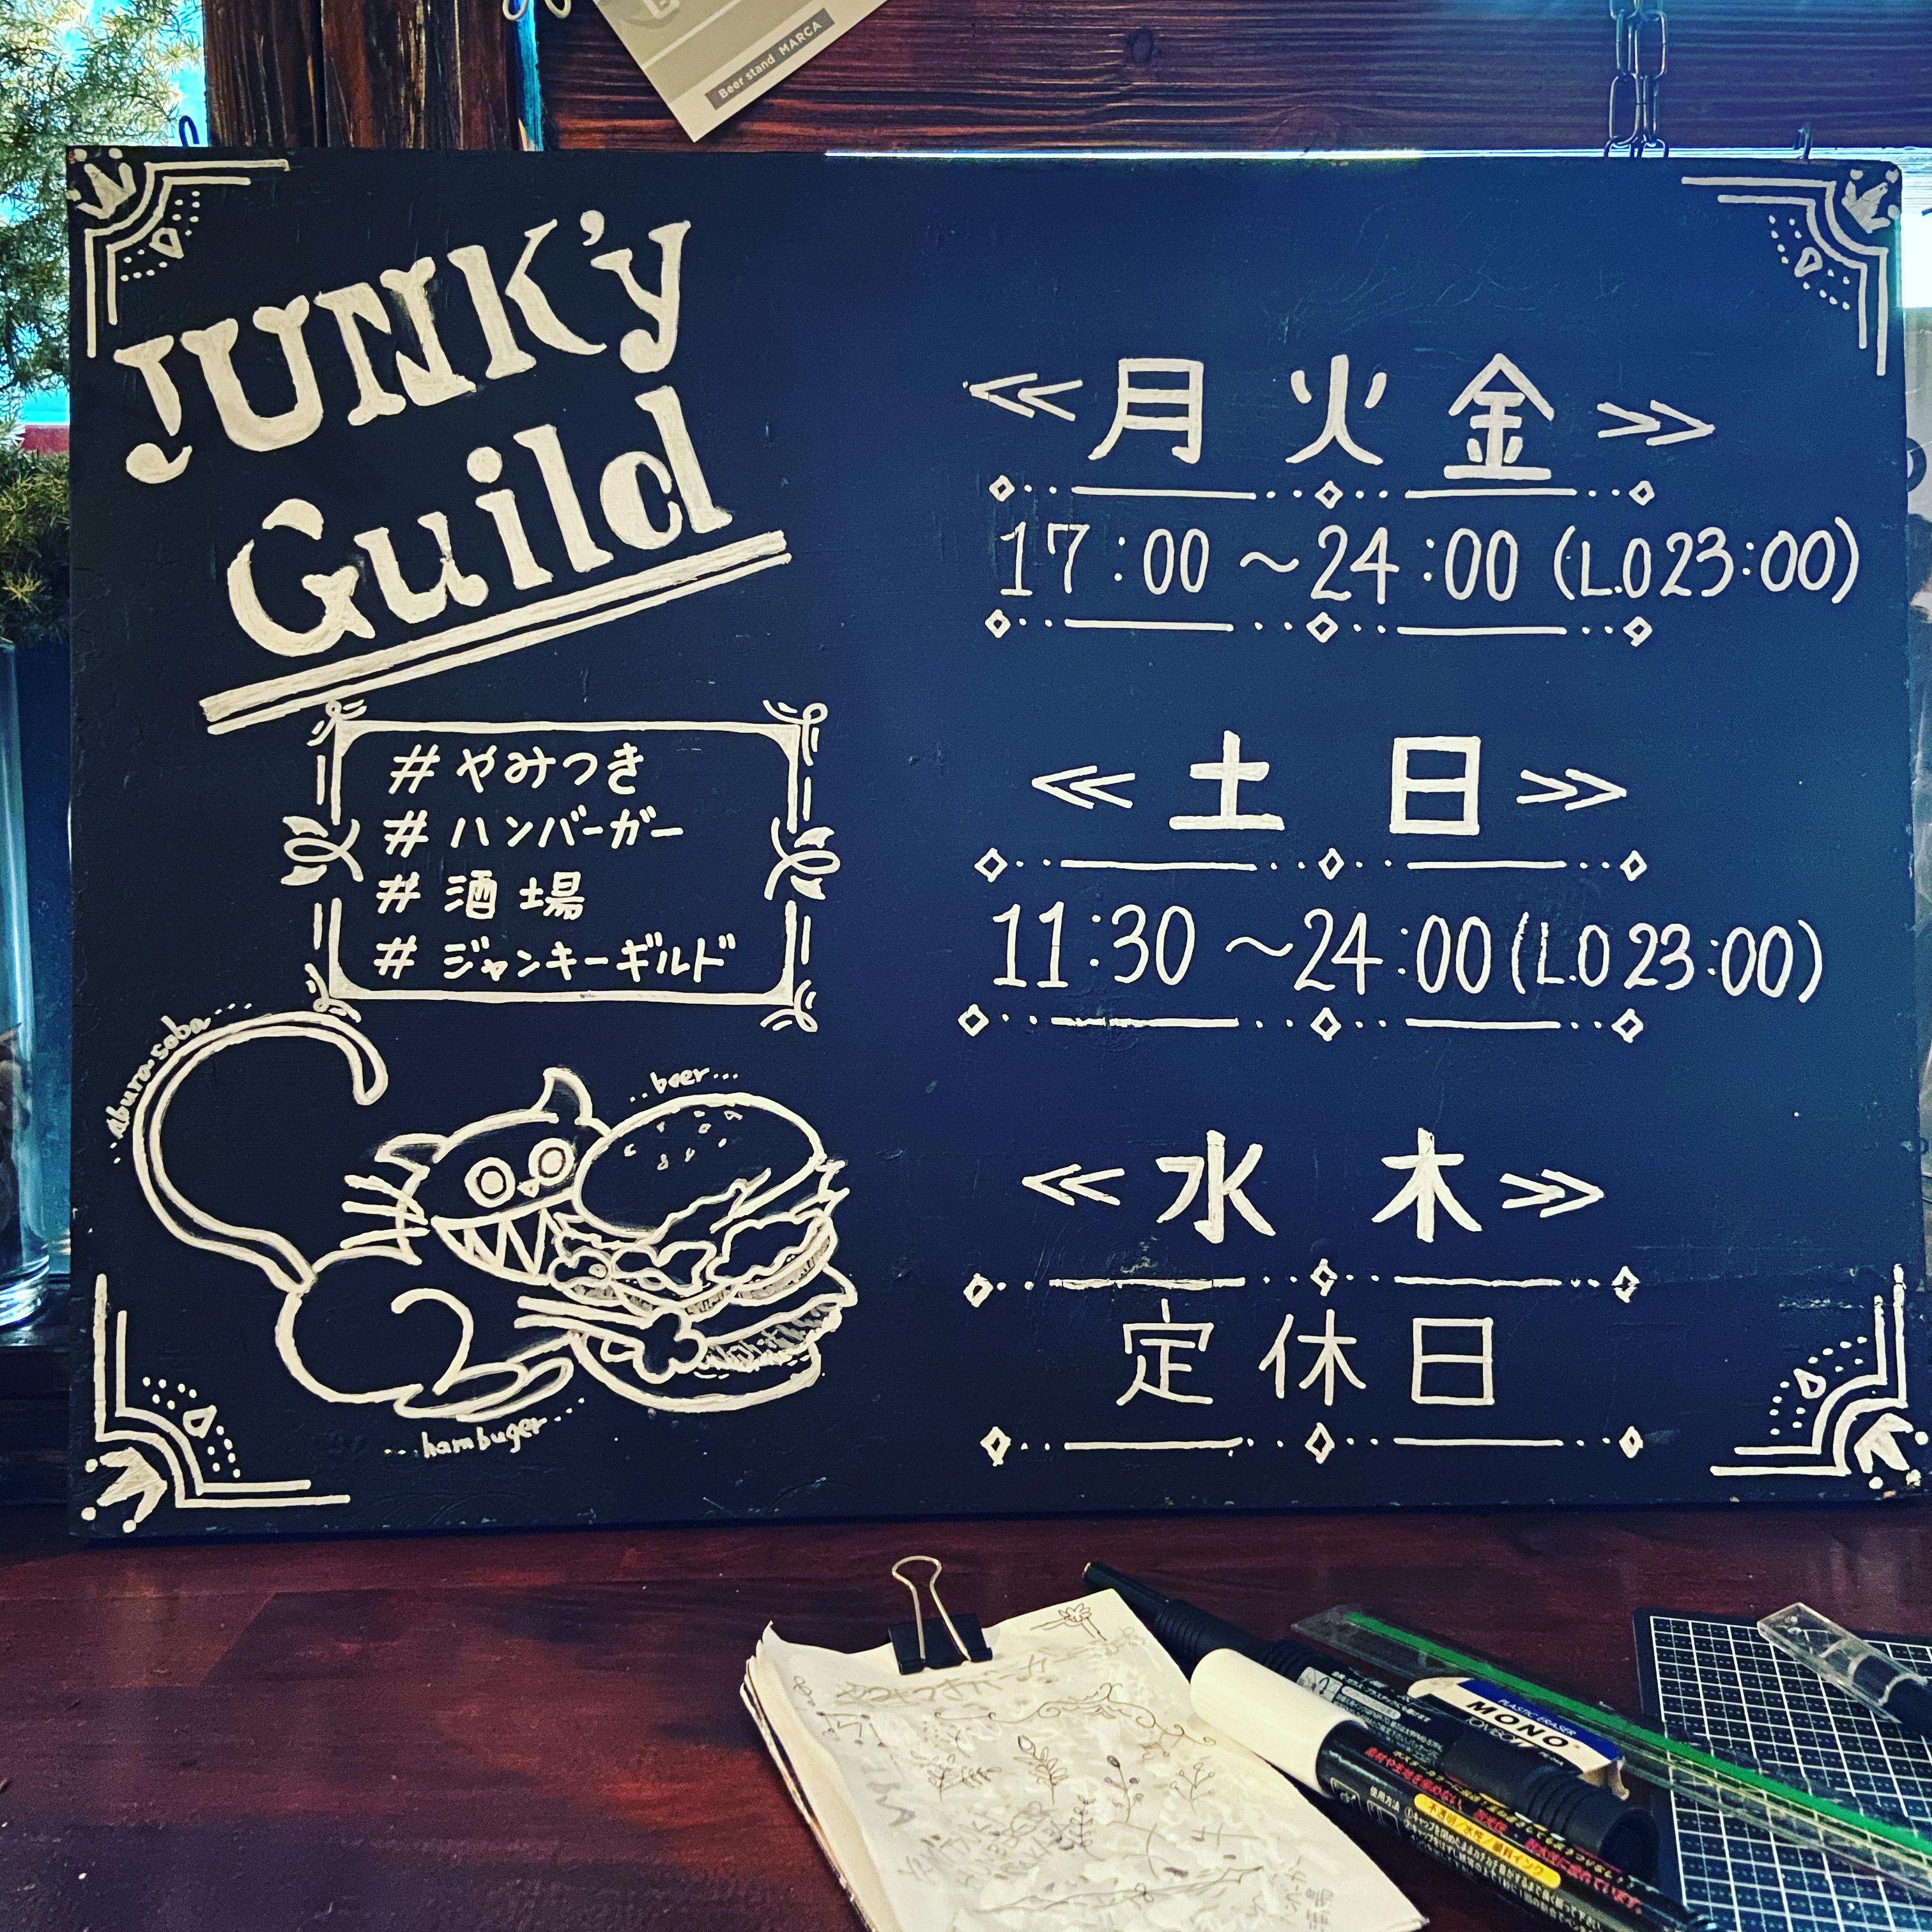 Beer stand MARCA
JUNK'y
Guild
#やみつき
#ハンバーガー
#酒場
#ジャンキーギルド
aburasoba...
...beer...
...hambuger...
≪月 火 金≫
17:00～24:00(L.O23:00)
≪土 日≫
11:30～24:00(L.O23:00)
≪水 木≫
定休日
PLASTIC ERASER
MONO
使用方法
不透明/水性/顔料インキ